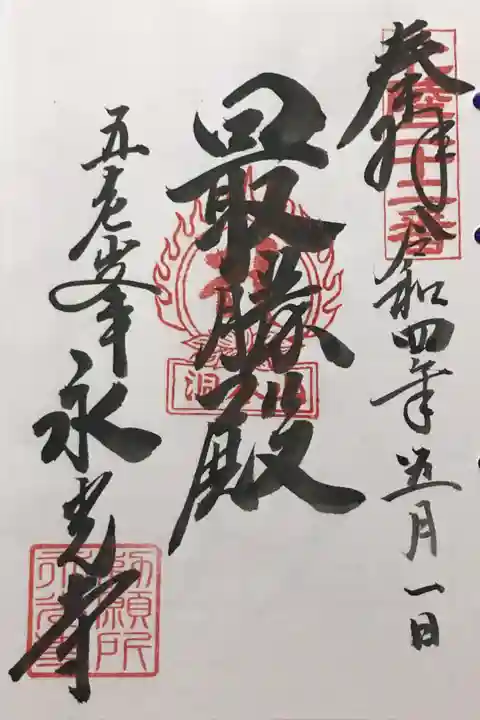 奉拝 令和四年五月一日
最勝殿
五老峯 永光寺
勅願所
永光寺